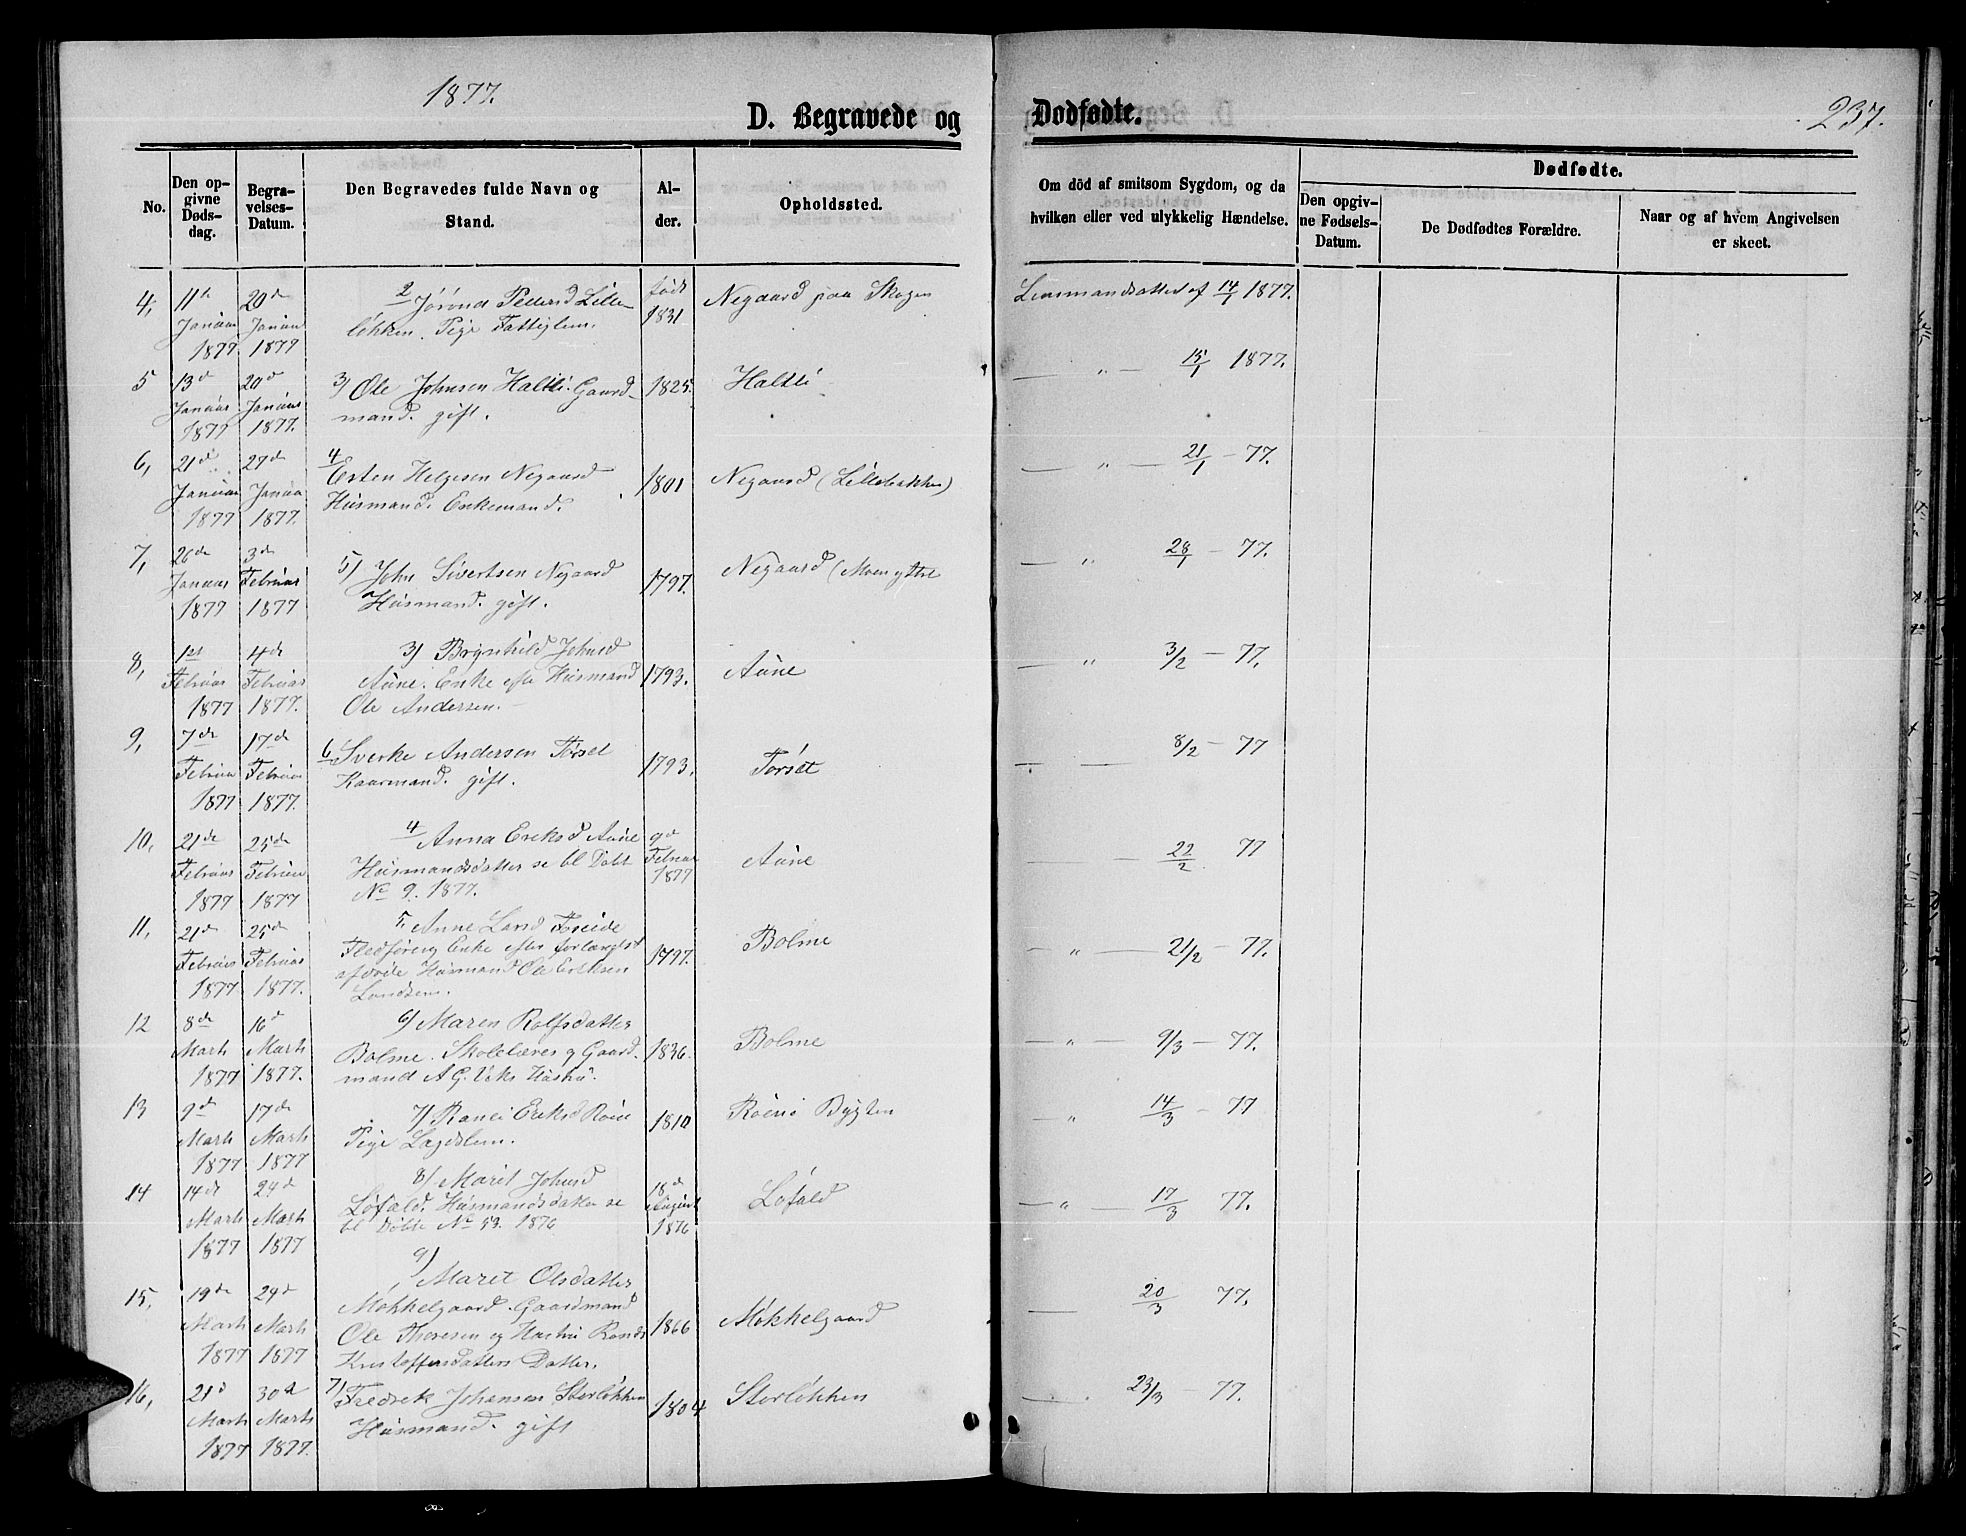 1877.
D. Begravede og Dødfødte.
237.
No.
Den opgivne Dødsdag.
Begravelses-Datum.
Den Begravedes fulde Navn og Stand.
Alder.
Opholdssted.
Om död af smitsom Sygdom, og da hvilken eller ved ulykkelig Hændelse.
Dødfødte.
Den opgivne Fødsels-Datum.
De Dødfødtes Forældre.
Naar og af hvem Angivelsen er skeet.
4, 11te 20de 2 Jörond Pedersd Lille- født Negaard paa Skogen Lensmandsattest af 14/1 1877.
Januar Januar løkken. Pige Fattiglem. 1831
1877 1877
5 13de 20de 3) Ole Johnsen Haltli. Gaard- 1825. Haltli — " — 15/1 1877.
Januar Januar mand. gift.
1877 1877.
6, 21de 27de 4 Esten Helgesen Negaard 1801 Negaard (Lillebakken) — " — 21/1 — 77.
Januar Januar Húsmand. Enkemand.
1877 1877.
7, 26de 3de 5) John Sivertsen Negaard 1797. Negaard (Moen ytre — " 28/1 — 77.
Januar Februar Húsmand. gift.
1877 1877
8, 1ste 4de 3) Brynhild Johnsd 1793. Aúne — " 3/2 — 77.
Februar Februar Aúne. Enke efter Húsmand
1877 1877. Ole Andersen.
9, 7de 17de 6 Sverke Andersen Tørset 1793. Tørset — — 8/2 — 77
Februar Februar Kaarmand. gift.
1877 1877.
10, 21de 25de 4 Anna Eriksd Aúne 9de Aúne — — 22/2 77
Februar Februar Húsmandsdatter se bl Døbt Februar
1877 1877 No 9. 1877. 1877
11, 21de 25de 5, Anne Larsd 1797. Bolme — " — 21/2 — 77.
Februar Februar Enke efter forlængst
1877 1877. afdøde Húsmand Ole Eriksen
12 8de 16de 6) Maren Rolfsdatter 1836. Bolme — " — 9/3 — 77.
Marts Marts Bolme. Skolelærer og Gaard-
1877 1877. mand Hústrú.
13 9de 17de 7) Eriksd 1810 Bygten " 14/3 — 77
Marts Marts Pige Lægdslem.
1877 1877
14 14de 24de 8) Marit Johnsd 18de Løfald — " — 17/3 77.
Marts Marts Løfald. Húsmandsdatter se August
1877 1877 bl Døbte No 53. 1876 1876
15, 19de 24de 9) Marit Olsdatter 1866 Mokkelgaard — 20/3 77.
Marts Marts Mokkelgaard. Gaardmand
1877 1877 Ole Thoresen og Hústrú
Kristoffersdatters Datter.
16, 21de 30te 7) Fredrek Johansen Storløkken 1804 Storløkken — 23/3 — 77.
Marts Marts Húsmand. gift
1877 1877.